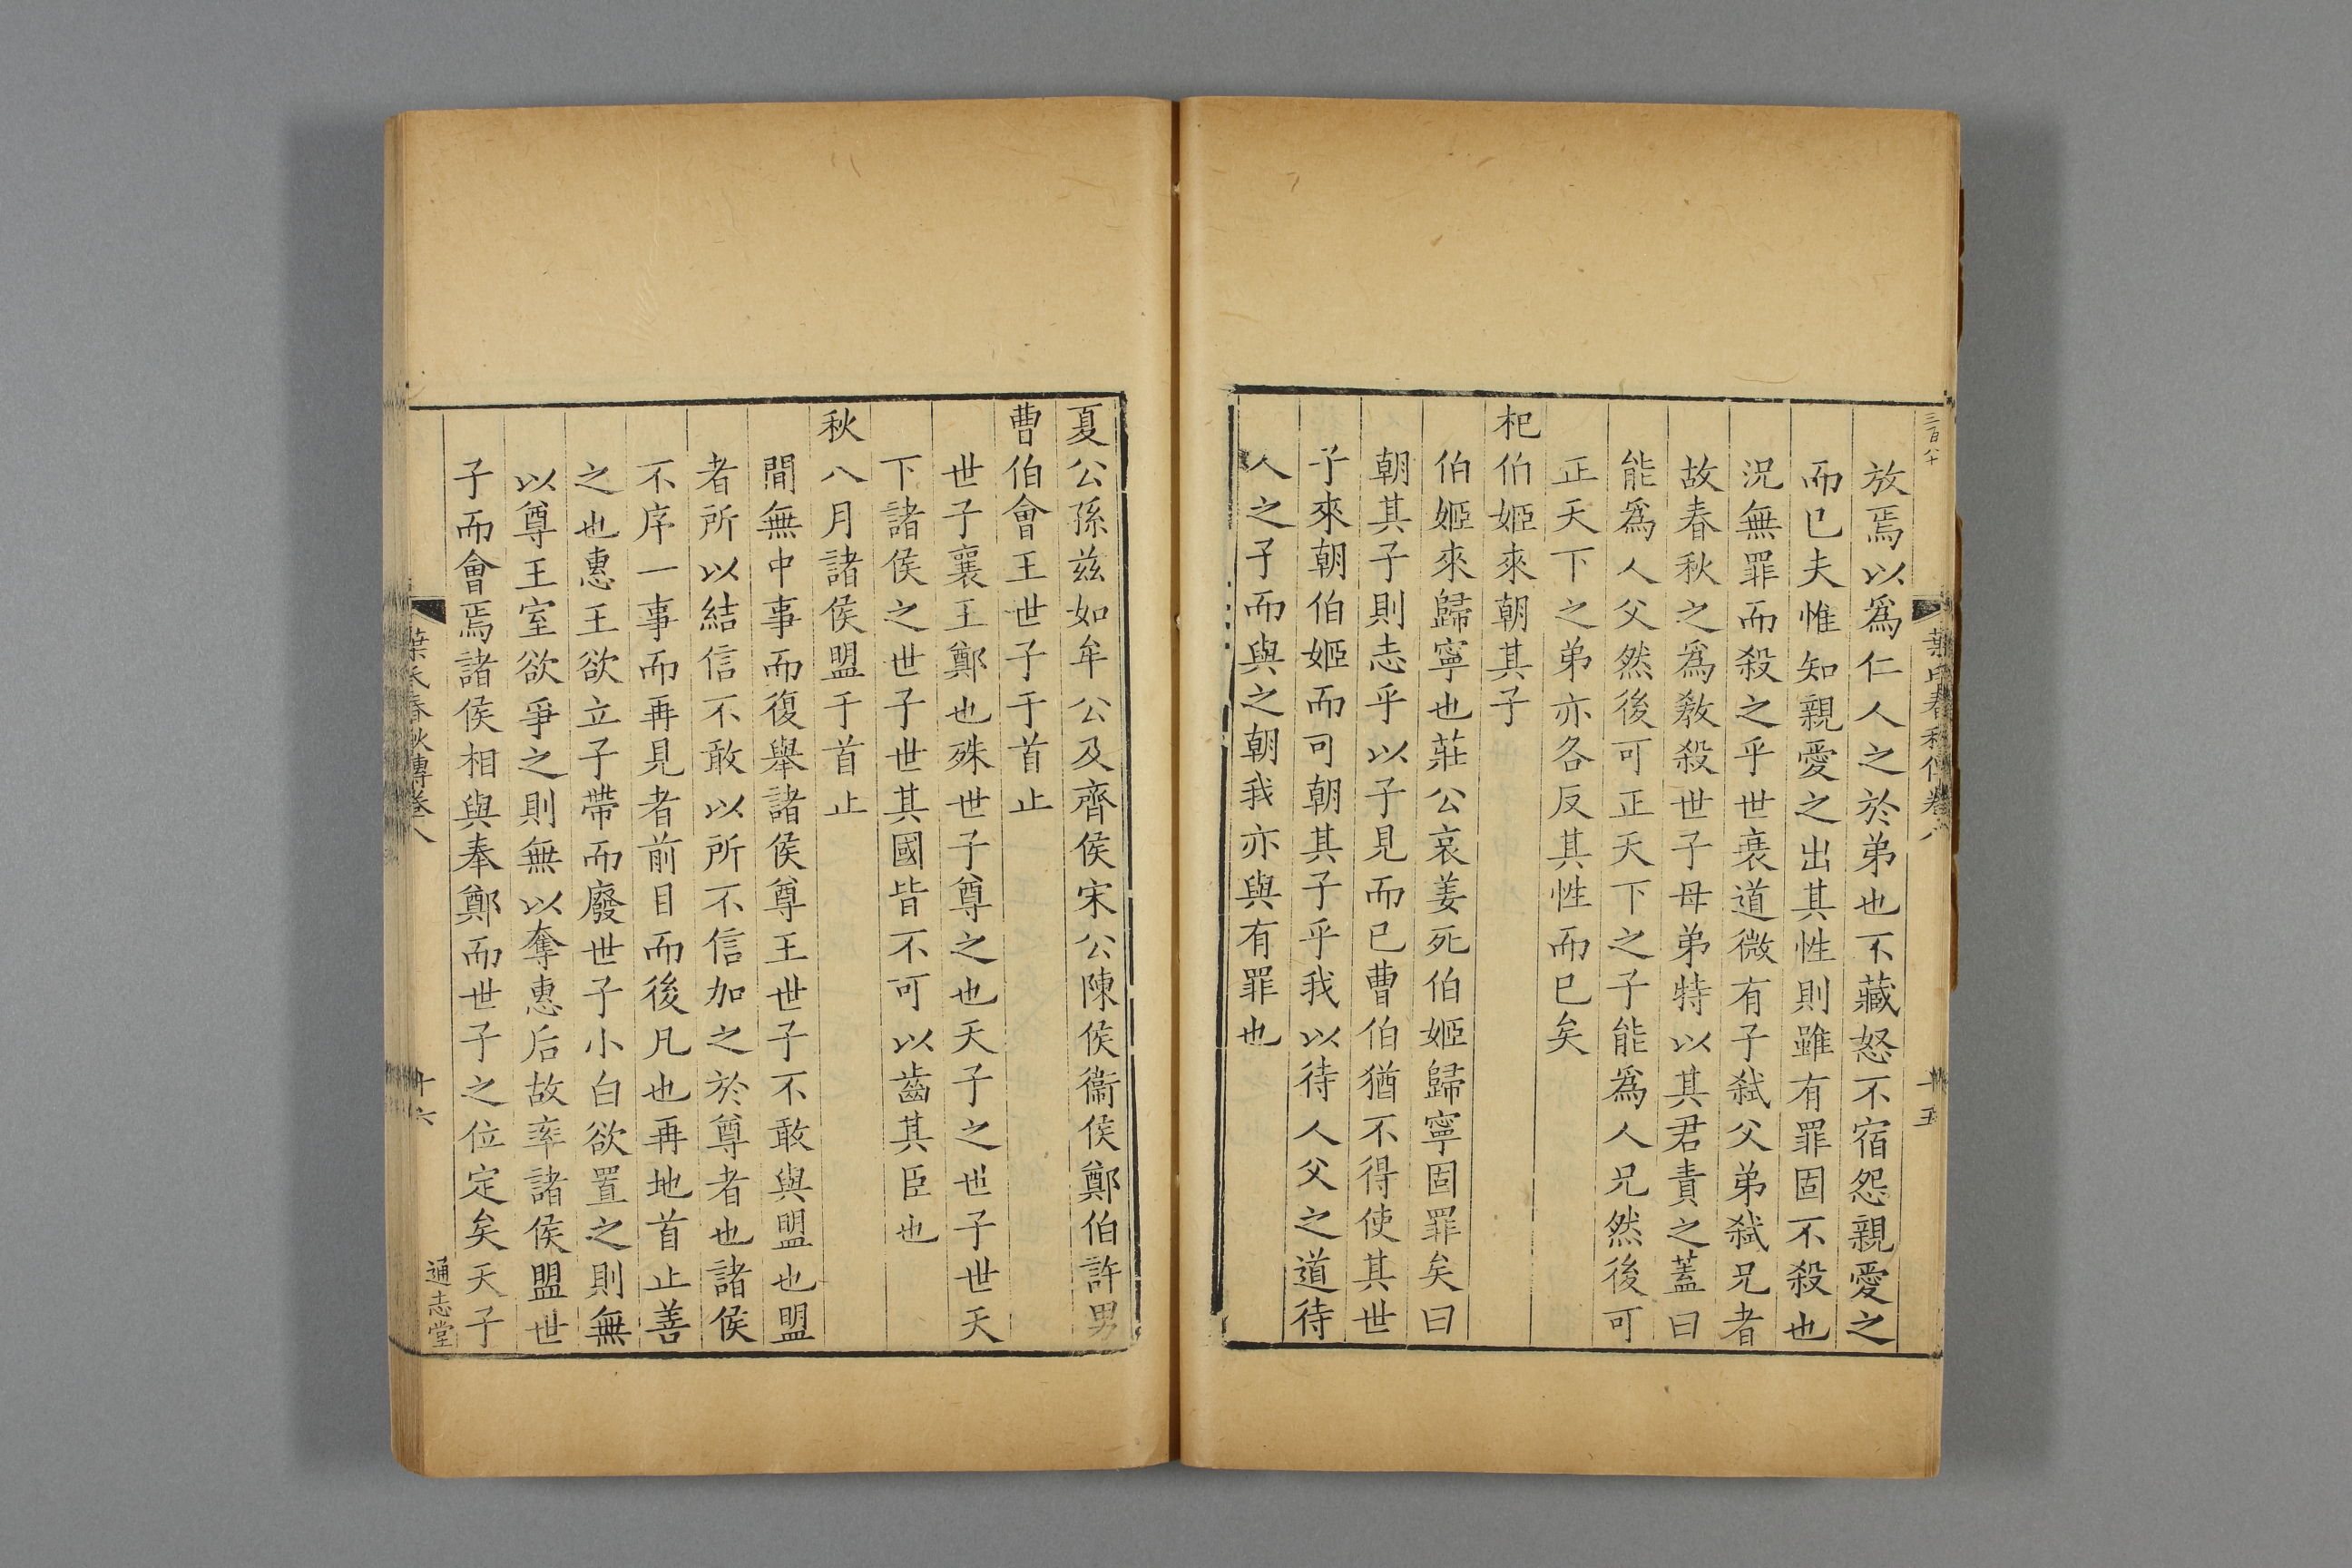 三百八十
葉氏春秋傳卷八
十五
放焉以為仁人之於弟也不藏怒不宿怨親愛之
而已夫惟知親愛之出其性則雖有罪固不殺也
況無罪而殺之乎世衰道微有子弑父弟弑兄者
故春秋之為敎殺世子母弟特以其君責之蓋曰
能為人父然後可正天下之子能為人兄然後可
正天下之弟亦各反其性而已矣
杞伯姬來朝其子
伯姬來歸寧也莊公哀姜死伯姬歸寧固罪矣曰
朝其子則志乎以子見而已曹伯猶不得使其世
子來朝伯姬而可朝其子乎我以待人父之道待
人之子而與之朝我亦與有罪也
夏公孫茲如牟公及齊侯宋公陳侯衞侯鄭伯許男
曹伯會王世子于首止
世子襄王鄭也殊世子尊之也天子之世子世天
下諸侯之世子世其國皆不可以齒其臣也
秋八月諸侯盟于首止
間無中事而復舉諸侯尊王世子不敢與盟也盟
者所以結信不敢以所不信加之於尊者也諸侯
不序一事而再見者前目而後凡也再地首止善
之也惠王欲立子帶而廢世子小白欲置之則無
以尊王室欲爭之則無以奪惠后故率諸侯盟世
子而會焉諸侯相與奉鄭而世子之位定矣天子
葉氏春秋傳卷八
十六
通志堂